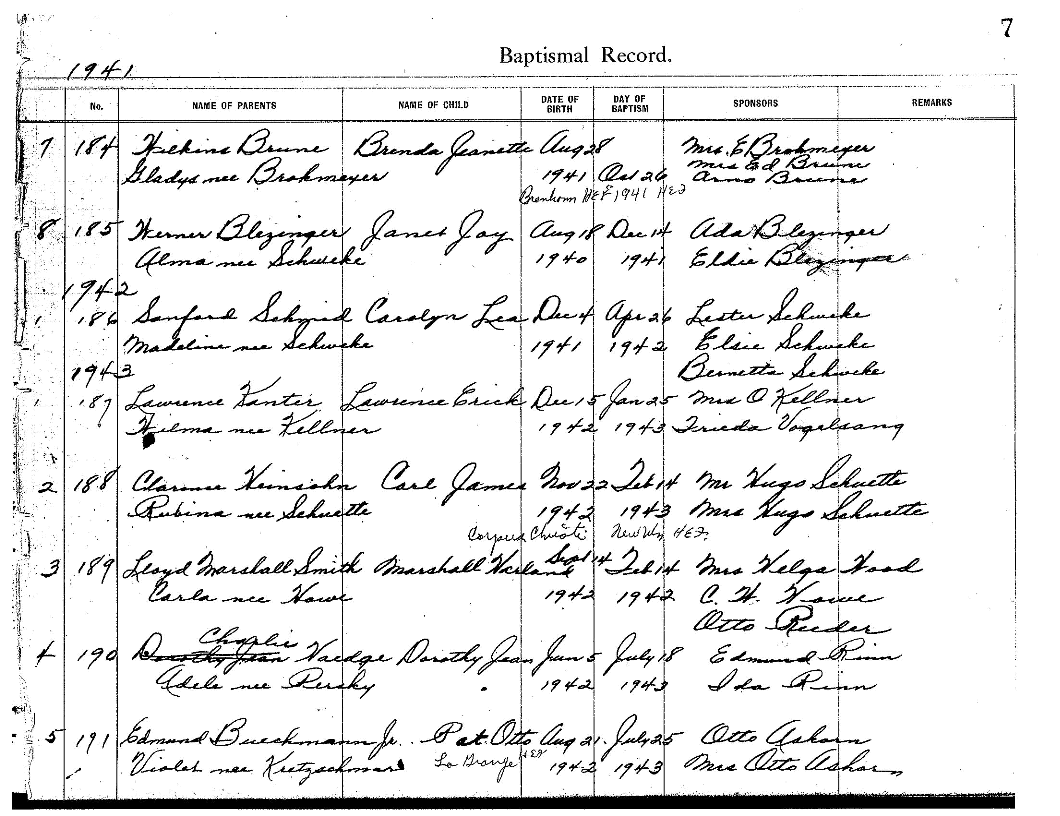 7
Baptismal Record.
1941
No. NAME OF PARENTS NAME OF CHILD DATE OF BIRTH DAY OF BAPTISM SPONSORS REMARKS
7 184 Wilkins Brune Brenda Jeanette Aug 28 Mrs. E Brohmeyer
Mrs Ed Brune
Gladys nee Brohmeyer 1941 Oct 26 Arno Brune
Brenham HEF 1941 HEF
8 185 Werner Blezinger Janet Joy Aug 18 Dec 14 Ada Blezinger
Alma nee Schweke 1940 1941 Eldie Blezinger
1942
1 186 Sanford Schmid Carolyn Lea Dec 4 Apr 26 Lester Schweke
Madeline nee Schweke 1941 1942 Elsie Schweke
1943 Bernetta Schweke
1 187 Lawrence Kanter Lawrence Erick Dec 15 Jan 25 Mrs O Kellner
Wilma nee Kellner 1942 1943 Frieda Vogelsang
2 188 Clarence Heinsohn Carl James Nov 22 Feb 14 Mr Hugo Schuette
Rubina nee Schuette 1942 1943 Mrs Hugo Schuette
Corpus Christi HEF.
3 189 Lloyd Marshall Smith Marshall Harland Sept 14 Feb 14 Mrs Helga Wood
Carla nee Howe 1942 1942 C. H. Howe
Otto Rieder
Charlie
4 190 Dorothy Jean Naedge Dorothy Jean Jun 5 July 18 Edmund Rinn
Adele nee Persky 1942 1943 Ida Rinn
5 191 Edmund Bueckmann Jr. Pat Otto Aug 21. July 25 Otto Ashorn
Violet nee Kretzschmar La Grange HEF 1942 1943 Mrs Otto Ashorn